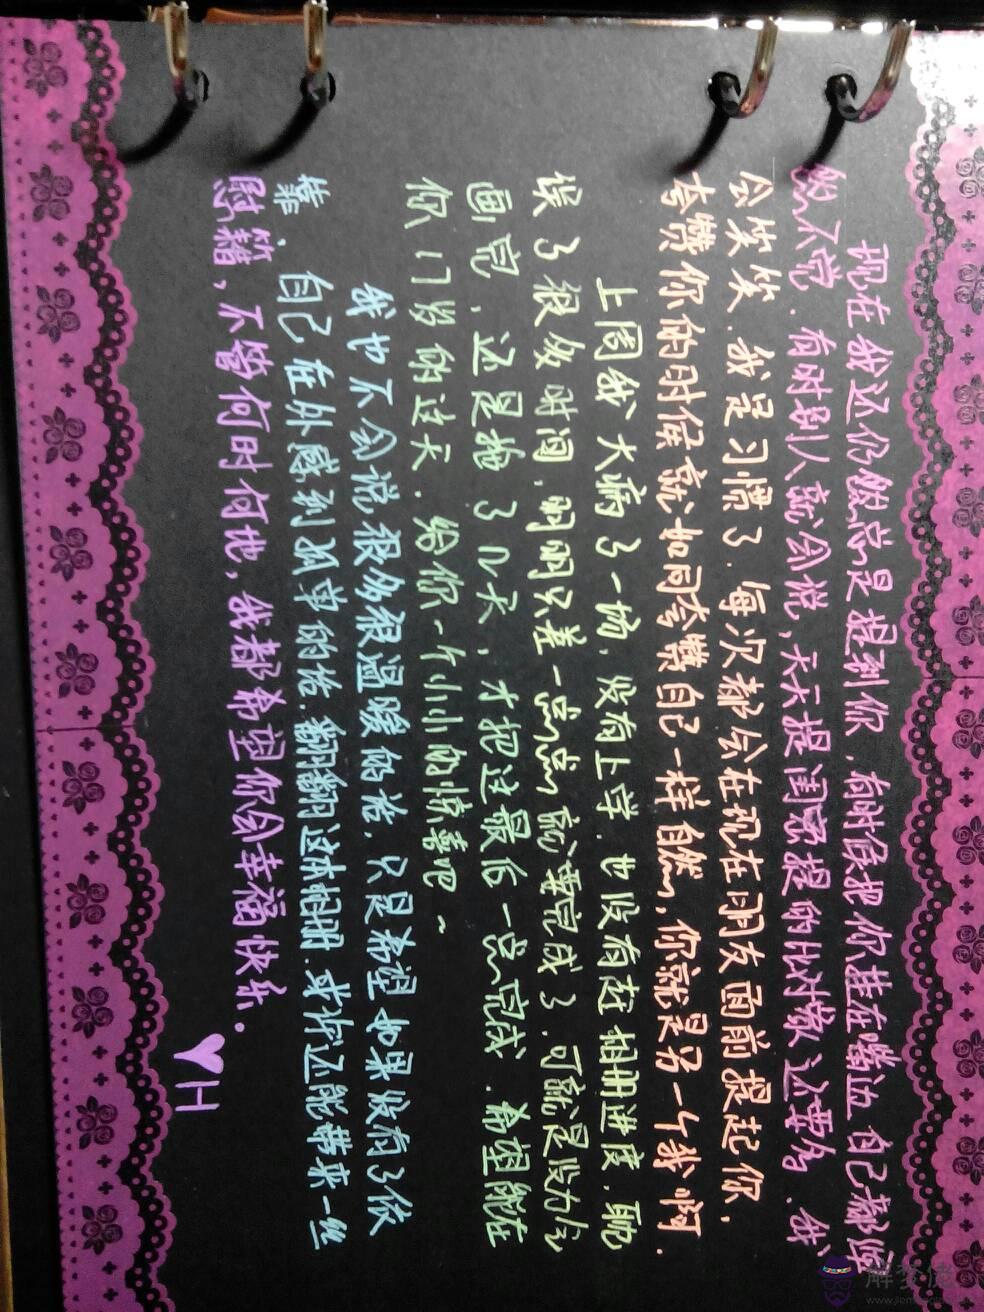 现在我还仍然总是提到你，有时候把你挂在嘴边自己都浑
然不觉．有时别人就会说，天天提闺密提的比对象还要多．我
会笑笑．我是习惯了．每次都会在现在朋友面前提起你，
夸赞你的时候就如同夸赞自己一样自然，你就是另一个我啊．
上周我大病了一场，没有上学．也没有赶相册进度，耽
误了很多时间，明明只差一点点就要完成了．可就是没力气
画完，还是拖了几天，才把这最后一点完成．希望能在
你17岁的这天．给你一个小小的惊喜吧~
我也不会说很多很温暖的话，只是希望如果没有了依
靠．自己在外感到孤单的话．翻翻这本相册．或许还能带来一丝
慰籍，不管何时何地，我都希望你会幸福快乐。
♥YH
解梦佬